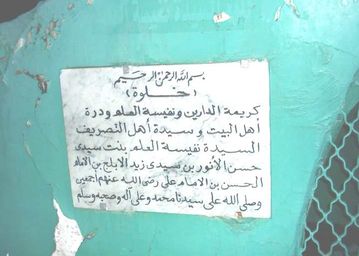 بسم الله الرحمن الرحيم
(خلوة)
كريمة الدارين ونفيسة العلم ودرة
أهل البيت وسيدة أهل التصريف
السيدة نفيسة العلم بنت سيدى
حسن الأنور بن سيدى زيد الابلج بن الامام
الحسن بن الامام على رضى الله عنهم أجمعين
وصلى الله على سيدنا محمد وعلى آله وصحبه وسلم